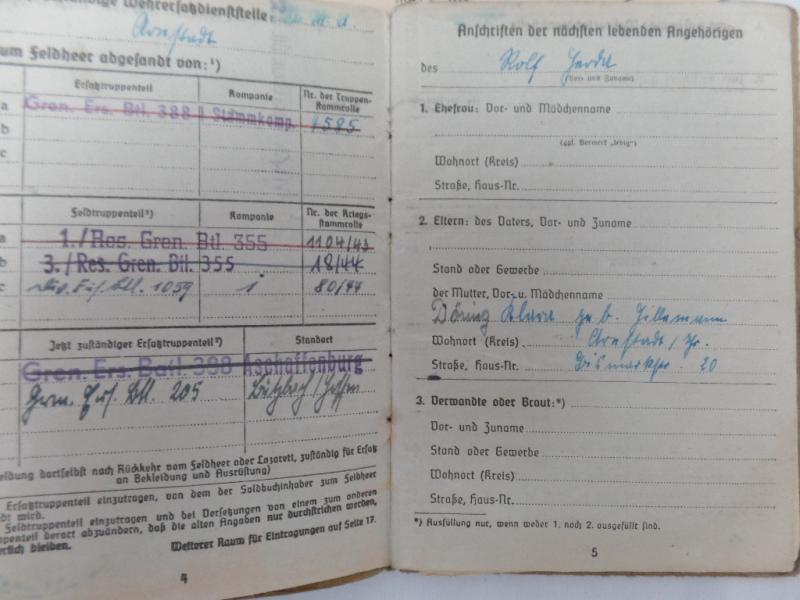 ständige Wehrersatzdienststelle:
Arnstadt
um Feldheer abgesandt von:¹)
Ersatztruppenteil Kompanie Nr. der Truppen-stammrolle
a Gren. Ers. Btl. 388 Stammkomp. 1585
b
c
Feldtruppenteil²) Kompanie Nr. der Kriegs-stammrolle
a 1./Res. Gren. Btl. 355 1104/43
b 3./Res. Gren. Btl. 355 18/44
c Btl. 1059 1 80/44
Jetzt zuständiger Ersatztruppenteil²) Standort
Gren. Ers. Batl. 388 Aschaffenburg
Gren. Ers. Btl. 205 Butzbach/Hessen
eldung dortselbst nach Rückkehr vom Feldheer oder Lazarett, zuständig für Ersatz
an Bekleidung und Ausrüstung)
Ersatztruppenteil einzutragen, von dem der Soldbuchinhaber zum Feldheer
dt wird.
Feldtruppenteil einzutragen und bei Versetzungen von einem zum anderen
ppenteil derart abzuändern, daß die alten Angaben nur durchstrichen werden,
erlich bleiben. Weiterer Raum für Eintragungen auf Seite 17.
4
Anschriften der nächsten lebenden Angehörigen
des Rolf
(Vor- und Zuname)
1. Ehefrau: Vor- und Mädchenname
(ggf. Vermerk „ledig")
Wohnort (Kreis)
Straße, Haus-Nr.
2. Eltern: des Vaters, Vor- und Zuname
Stand oder Gewerbe
der Mutter, Vor- u. Mädchenname
Döring Klara geb. Hillemann
Wohnort (Kreis) Arnstadt / Thr.
Straße, Haus-Nr. Bismarkstr. 20
3. Verwandte oder Braut:*)
Vor- und Zuname
Stand oder Gewerbe
Wohnort (Kreis)
Straße, Haus-Nr.
*) Ausfüllung nur, wenn weder 1. noch 2. ausgefüllt sind.
5